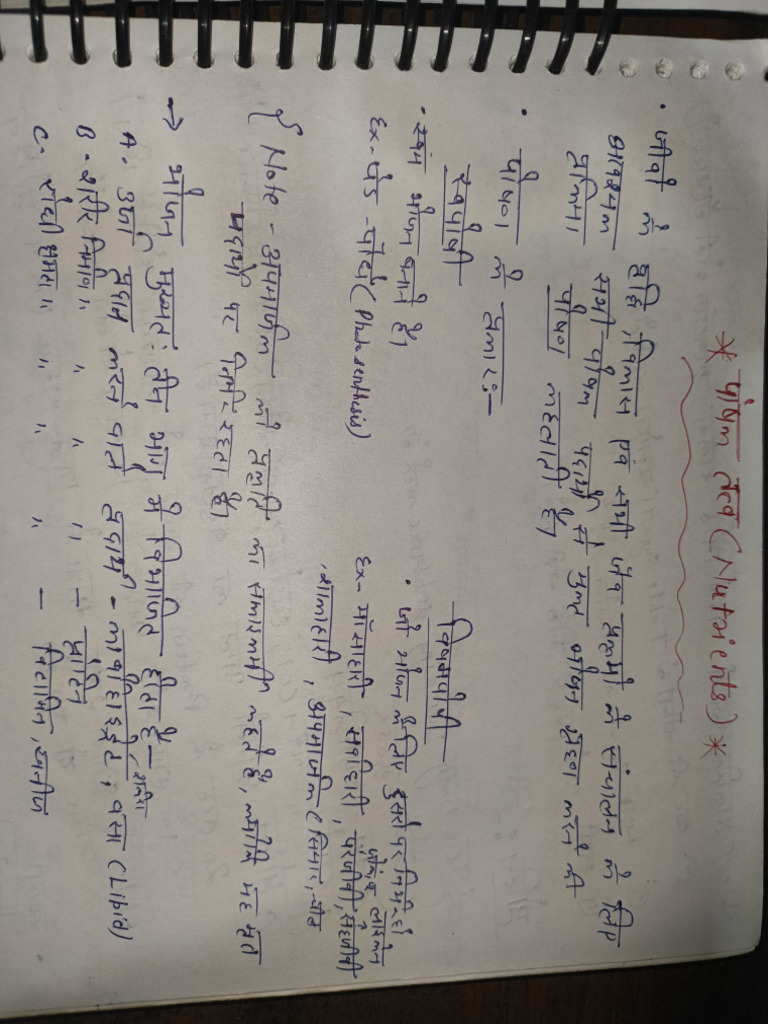 * पोषक तत्व (Nutrients) *
• जीवों के वृद्धि, विकास एवं सभी जैव प्रक्रमों के संचालन के लिए
आवश्यक सभी पोषक पदार्थों से युक्त भोजन ग्रहण करने की
प्रक्रिया पोषण कहलाती है।
• पोषण के प्रकार:-
स्वपोषी
• स्वंय भोजन बनाते है।
Ex- पेड़-पौधे (Photosenthesis)
विषमपोषी
• जो भोजन के लिए दुसरो पर निर्भर हो
Ex- माँसाहारी, सर्वाहारी, परजीवी, सहजीवी
शाकाहारी, अपमार्जक (सियार, गीद्ध
{ Note - अपमार्जक को प्रकृति का सफाईकर्मी कहते है, क्योंकि यह मृत
पदार्थो पर निर्भर रहता है।
→ भोजन मुख्यतः तीन भागों में विभाजित होता है -
A- उर्जा प्रदान करने वाले प्रदार्थ - कार्बोहाइड्रेट, वसा (Libid)
B- शरीर निर्माण " " " " - प्रोटिन
C- रोधी क्षमता " " " " - विटामिन, खनीज